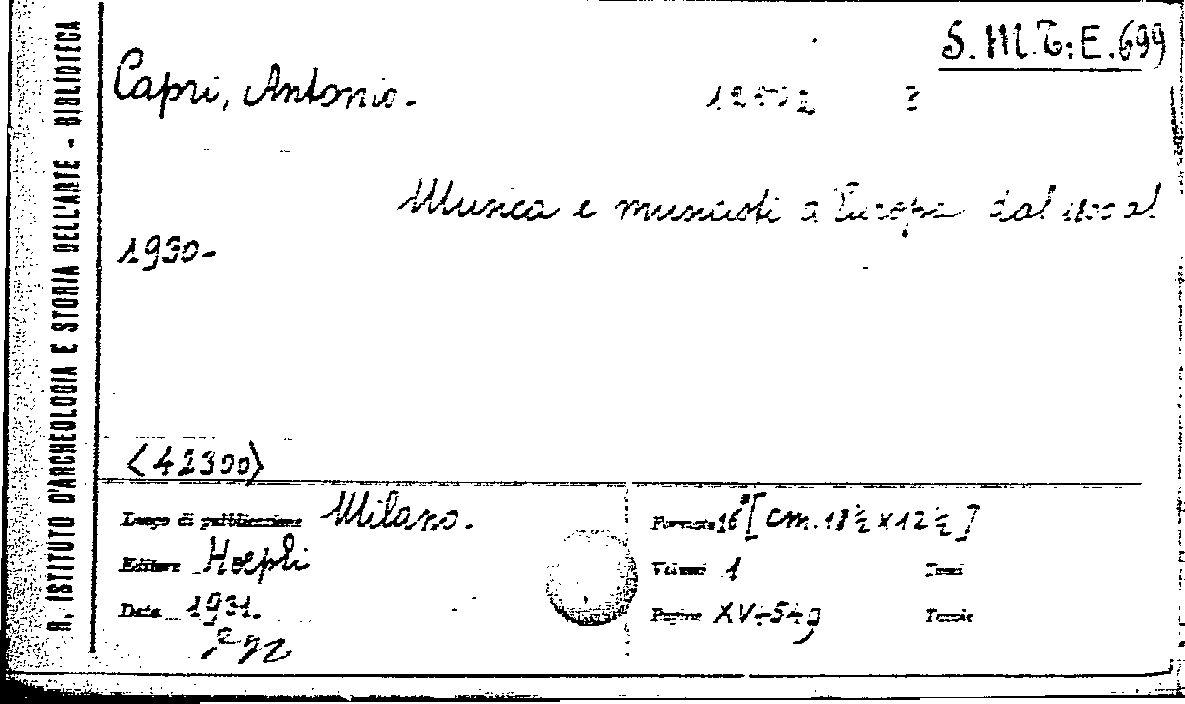 R. ISTITUTO D'ARCHEOLOGIA E STORIA DELL'ARTE - BIBLIOTECA
S. M. T. E. 699
Capri, Antonio.
Musica e musicisti d'Europa dal 1800 al
1930-
<42300>
Luogo di pubblicazione Milano.
Editore Hoepli
Data 1931.
Formato 16° [cm. 18½ x 12½]
Volumi 1 Tomi
Pagine XV-549 Tavole